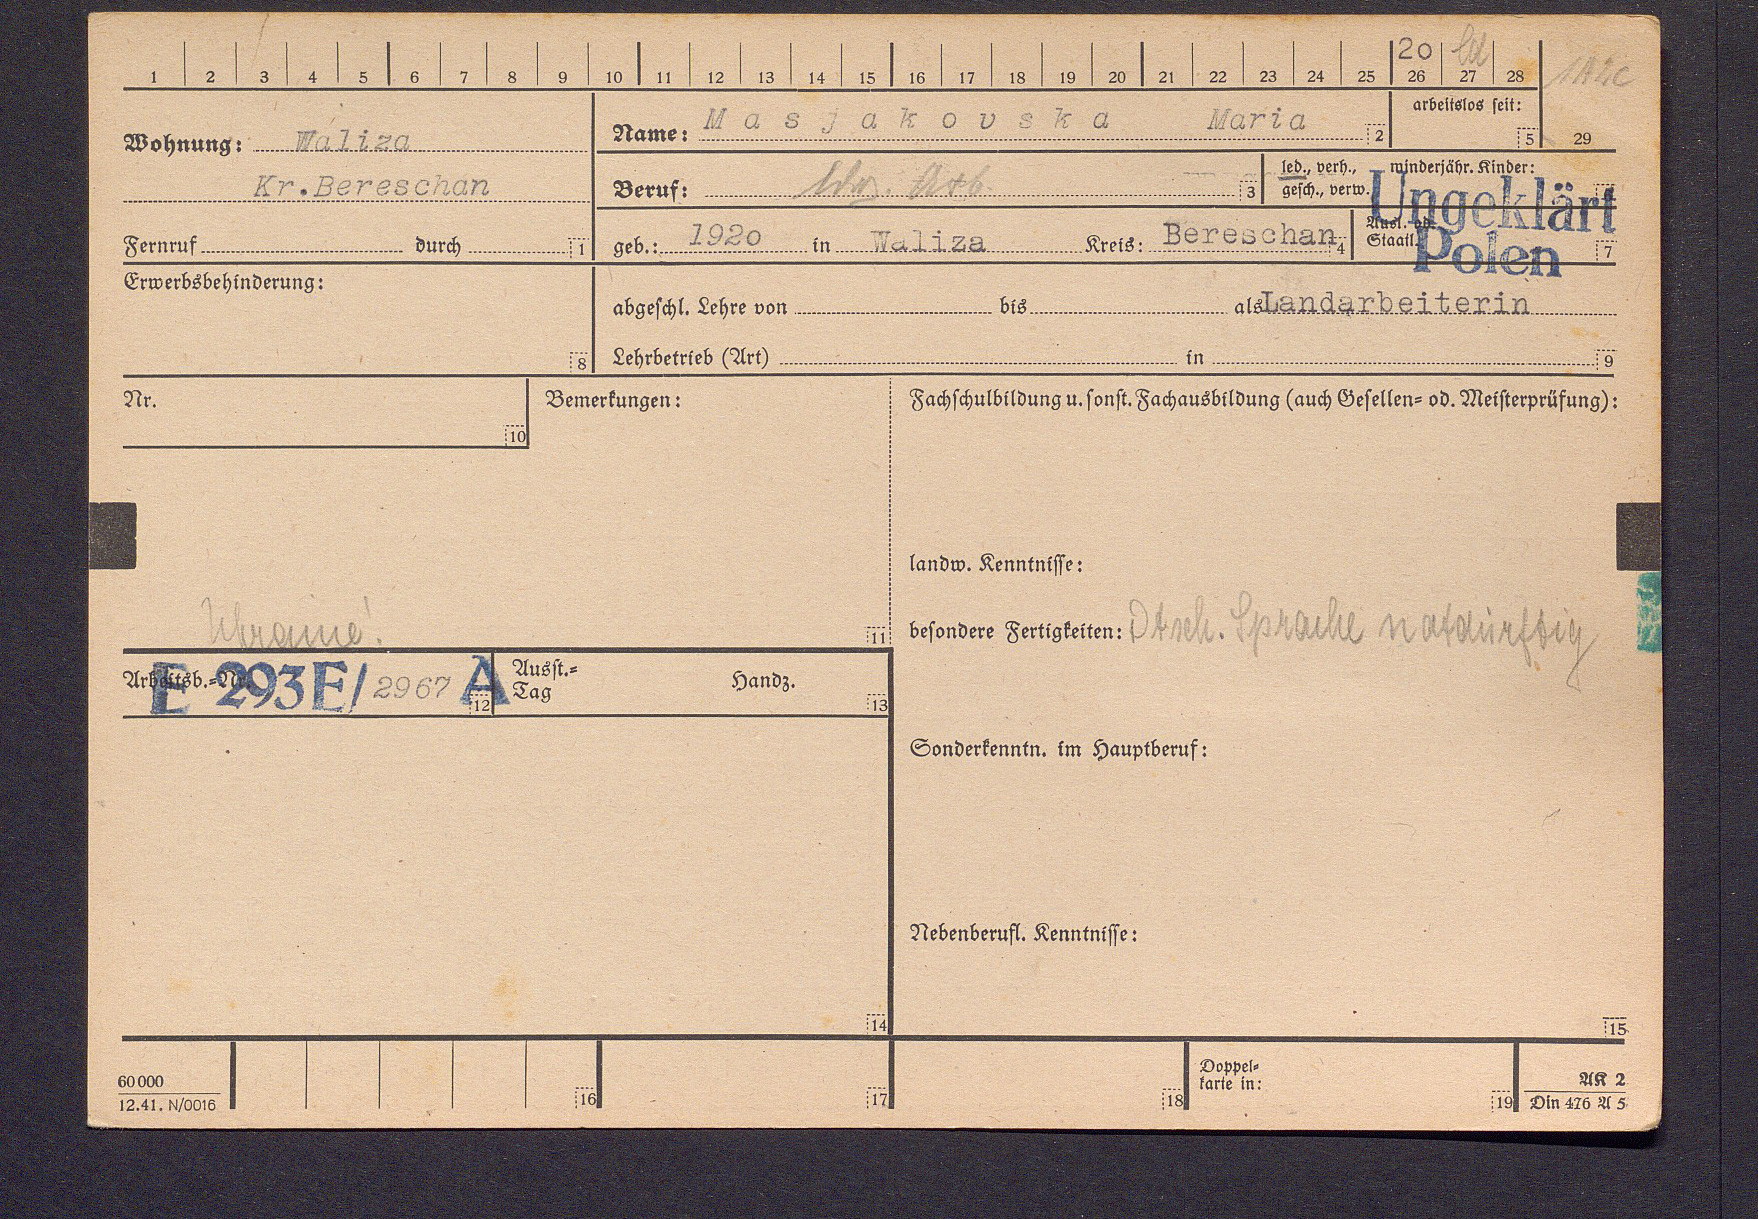 1 2 3 4 5 6 7 8 9 10 11 12 13 14 15 16 17 18 19 20 21 22 23 24 25 26 27 28
20
29
arbeitslos seit:
5
Wohnung: Waliza
Kr.Bereschan
Fernruf durch 1
Name: Masjakovska Maria 2
Beruf: Arb. 3
led., verh., gesch., verw.
minderjähr. Kinder:
geb.: 1920 in Waliza Kreis: Bereschan 4
Ausl. od.
Staatl.
7
Ungeklärt
Polen
Erwerbsbehinderung:
8
abgeschl. Lehre von bis als Landarbeiterin
Lehrbetrieb (Art) in 9
Nr.
10
Bemerkungen:
Ukraine!
11
Fachschulbildung u. sonst. Fachausbildung (auch Gesellen- od. Meisterprüfung):
landw. Kenntnisse:
besondere Fertigkeiten: Dtsch. Sprache notdürftig
Arbeitsb.-Nr.
E 293E/ 2967 A
12
Ausst.-
Tag
Handz.
13
Sonderkenntn. im Hauptberuf:
Nebenberufl. Kenntnisse:
14
15
60000
12.41. N/0016
16
17
18
Doppel-
karte in:
19
AK 2
Din 476 A 5